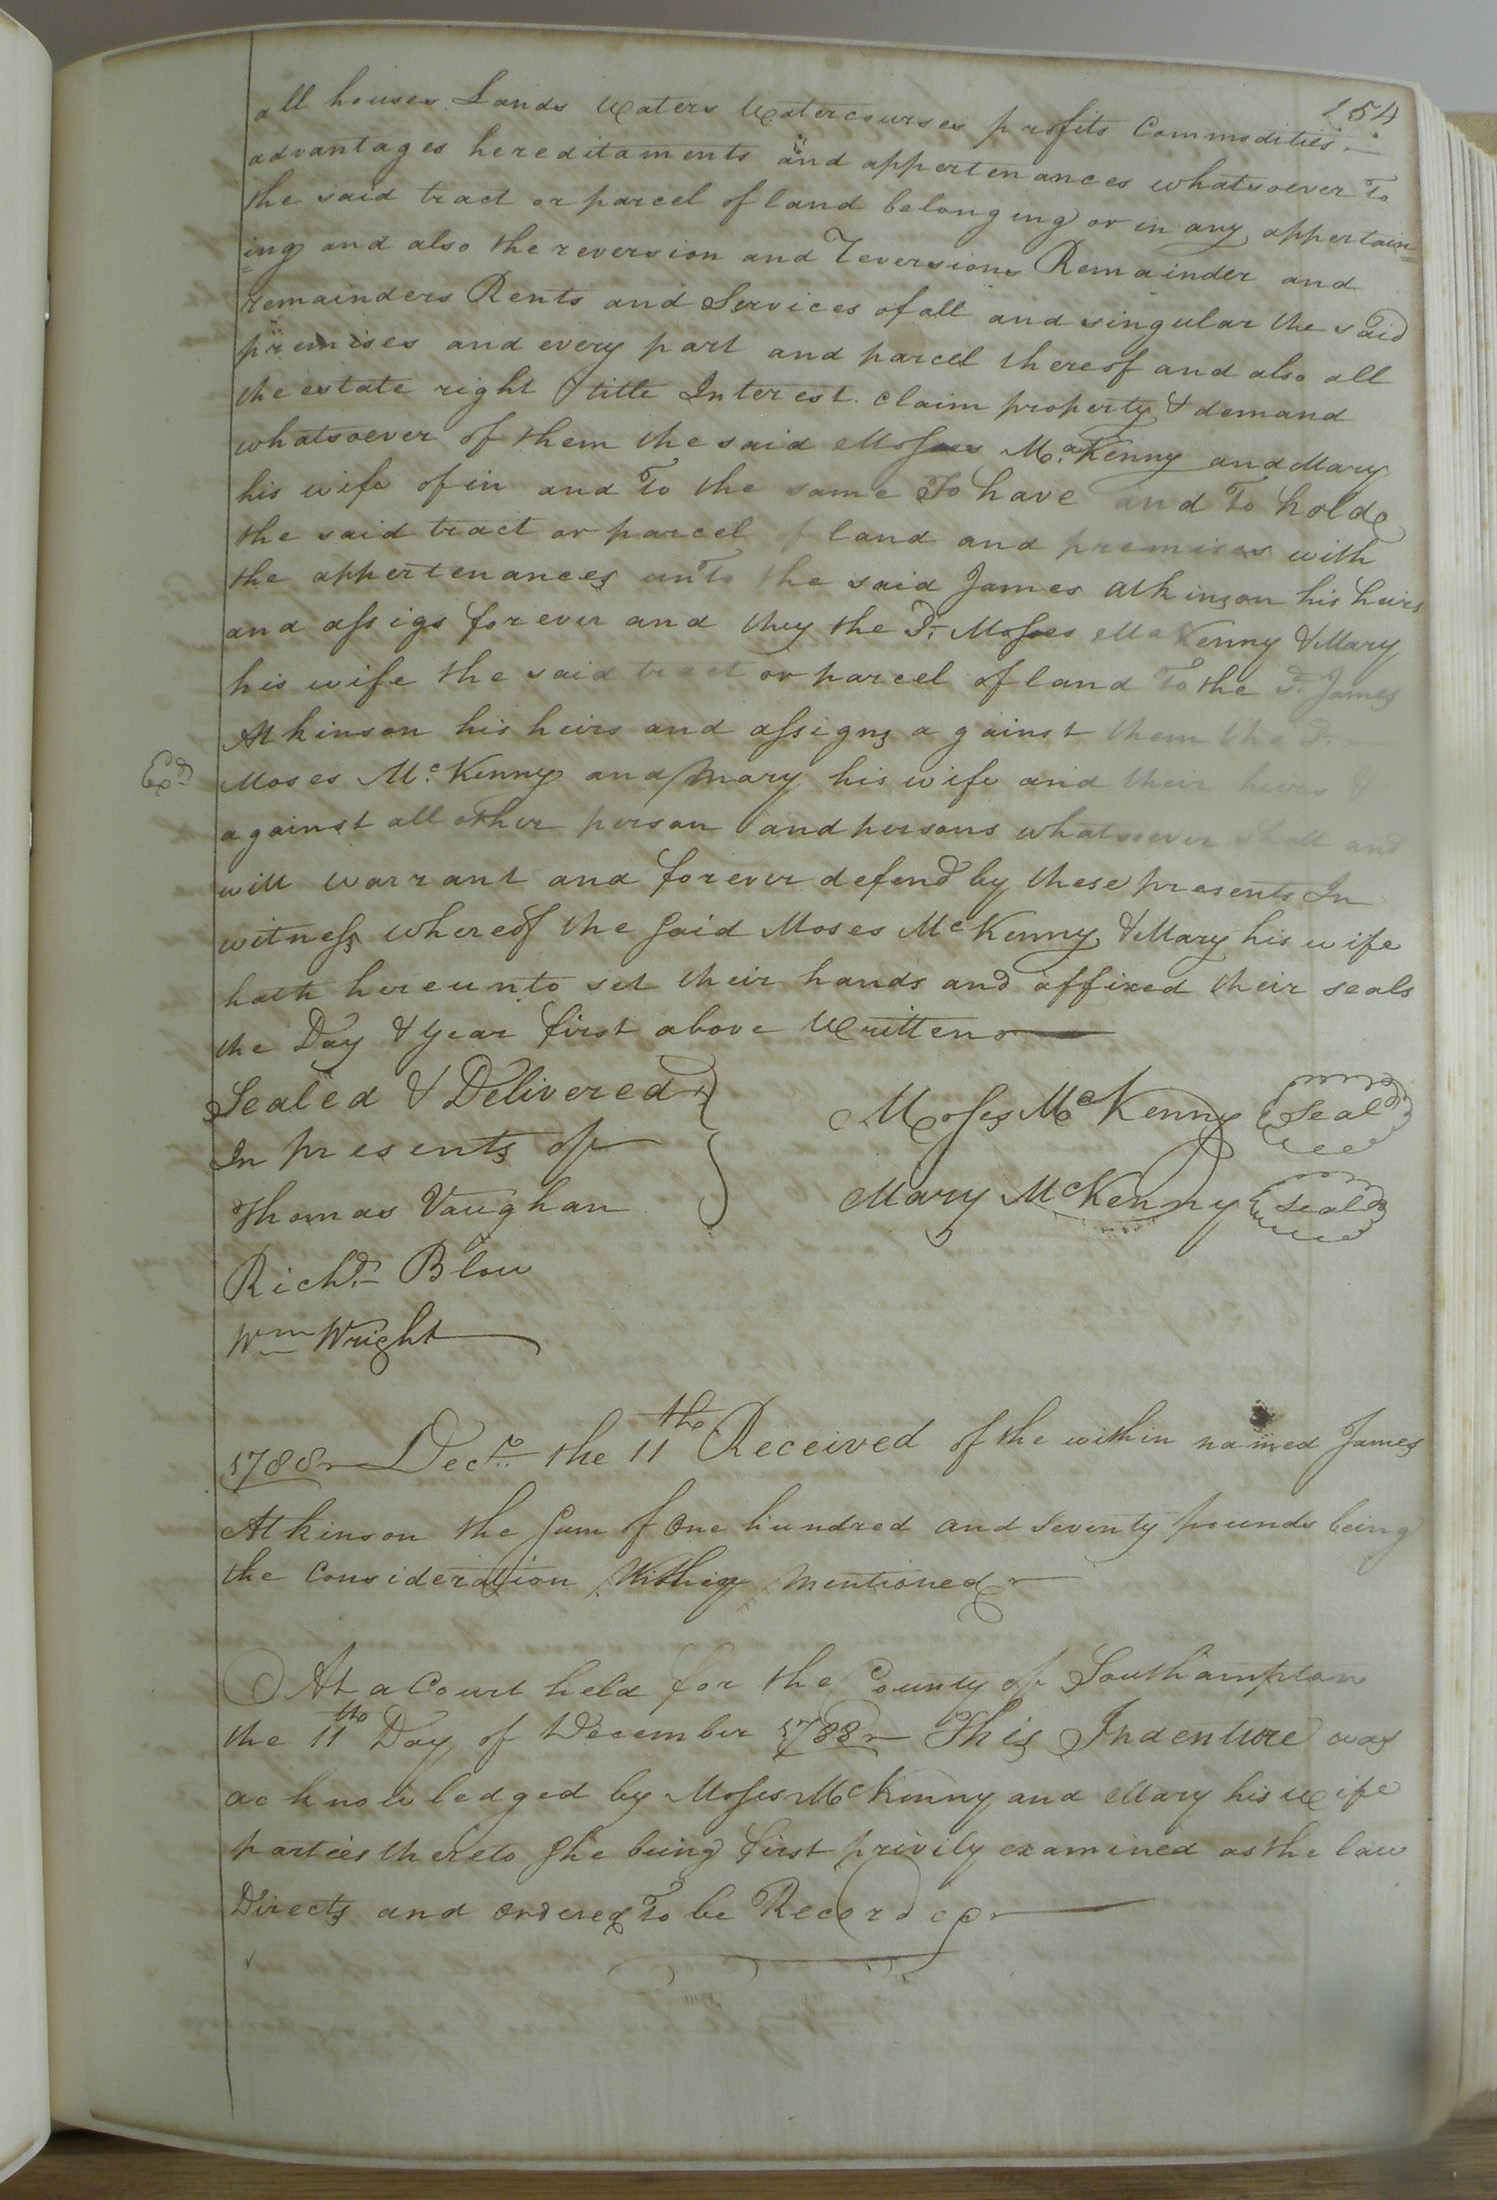 154
all houses Lands Waters Watercourses profits Commodities
advantages hereditaments and appertenances whatsoever To
the said tract or parcel of land belonging or in any appertain=
=ing and also the reversion and Reversions Remainder and
remainders Rents and Services of all and singular the said
premises and every part and parcel thereof and also all
the estate right title Interest claim property & demand
whatsoever of them the said Moses Mc.Kenny and Mary
his wife of in and To the same To have and To hold
the said tract or parcel of land and premises with
the appertenances unto the said James Atkinson his heirs
and assigs forever and they the Sd. Moses McKenny & Mary
his wife the said tract or parcel of land To the sd. James
Atkinson his heirs and assigns against them the Sd.
Exd. Moses Mc.Kenny and Mary his wife and their heirs &
against all other person and persons whatsoever shall and
will warrant and forever defend by these presents In
witness whereof the said Moses McKenny & Mary his wife
hath hereunto set their hands and affixed their seals
the Day & Year first above Written
Sealed & Delivered
In presents of
Moses McKenny Seal
Thomas Vaughan
Mary McKenny Seal
Richd. Blow
Wm Wright
1788 Decr. the 11th Received of the within named James
Atkinson the Sum of One hundred and Seventy pounds being
the Consideration Within Mentioned
At a Court held for the County of Southampton
the 11th Day of December 1788 This Indenture was
acknowledged by Moses McKenny and Mary his Wife
parties thereto She being first privily examined as the law
Directs and Ordered To be Recorded